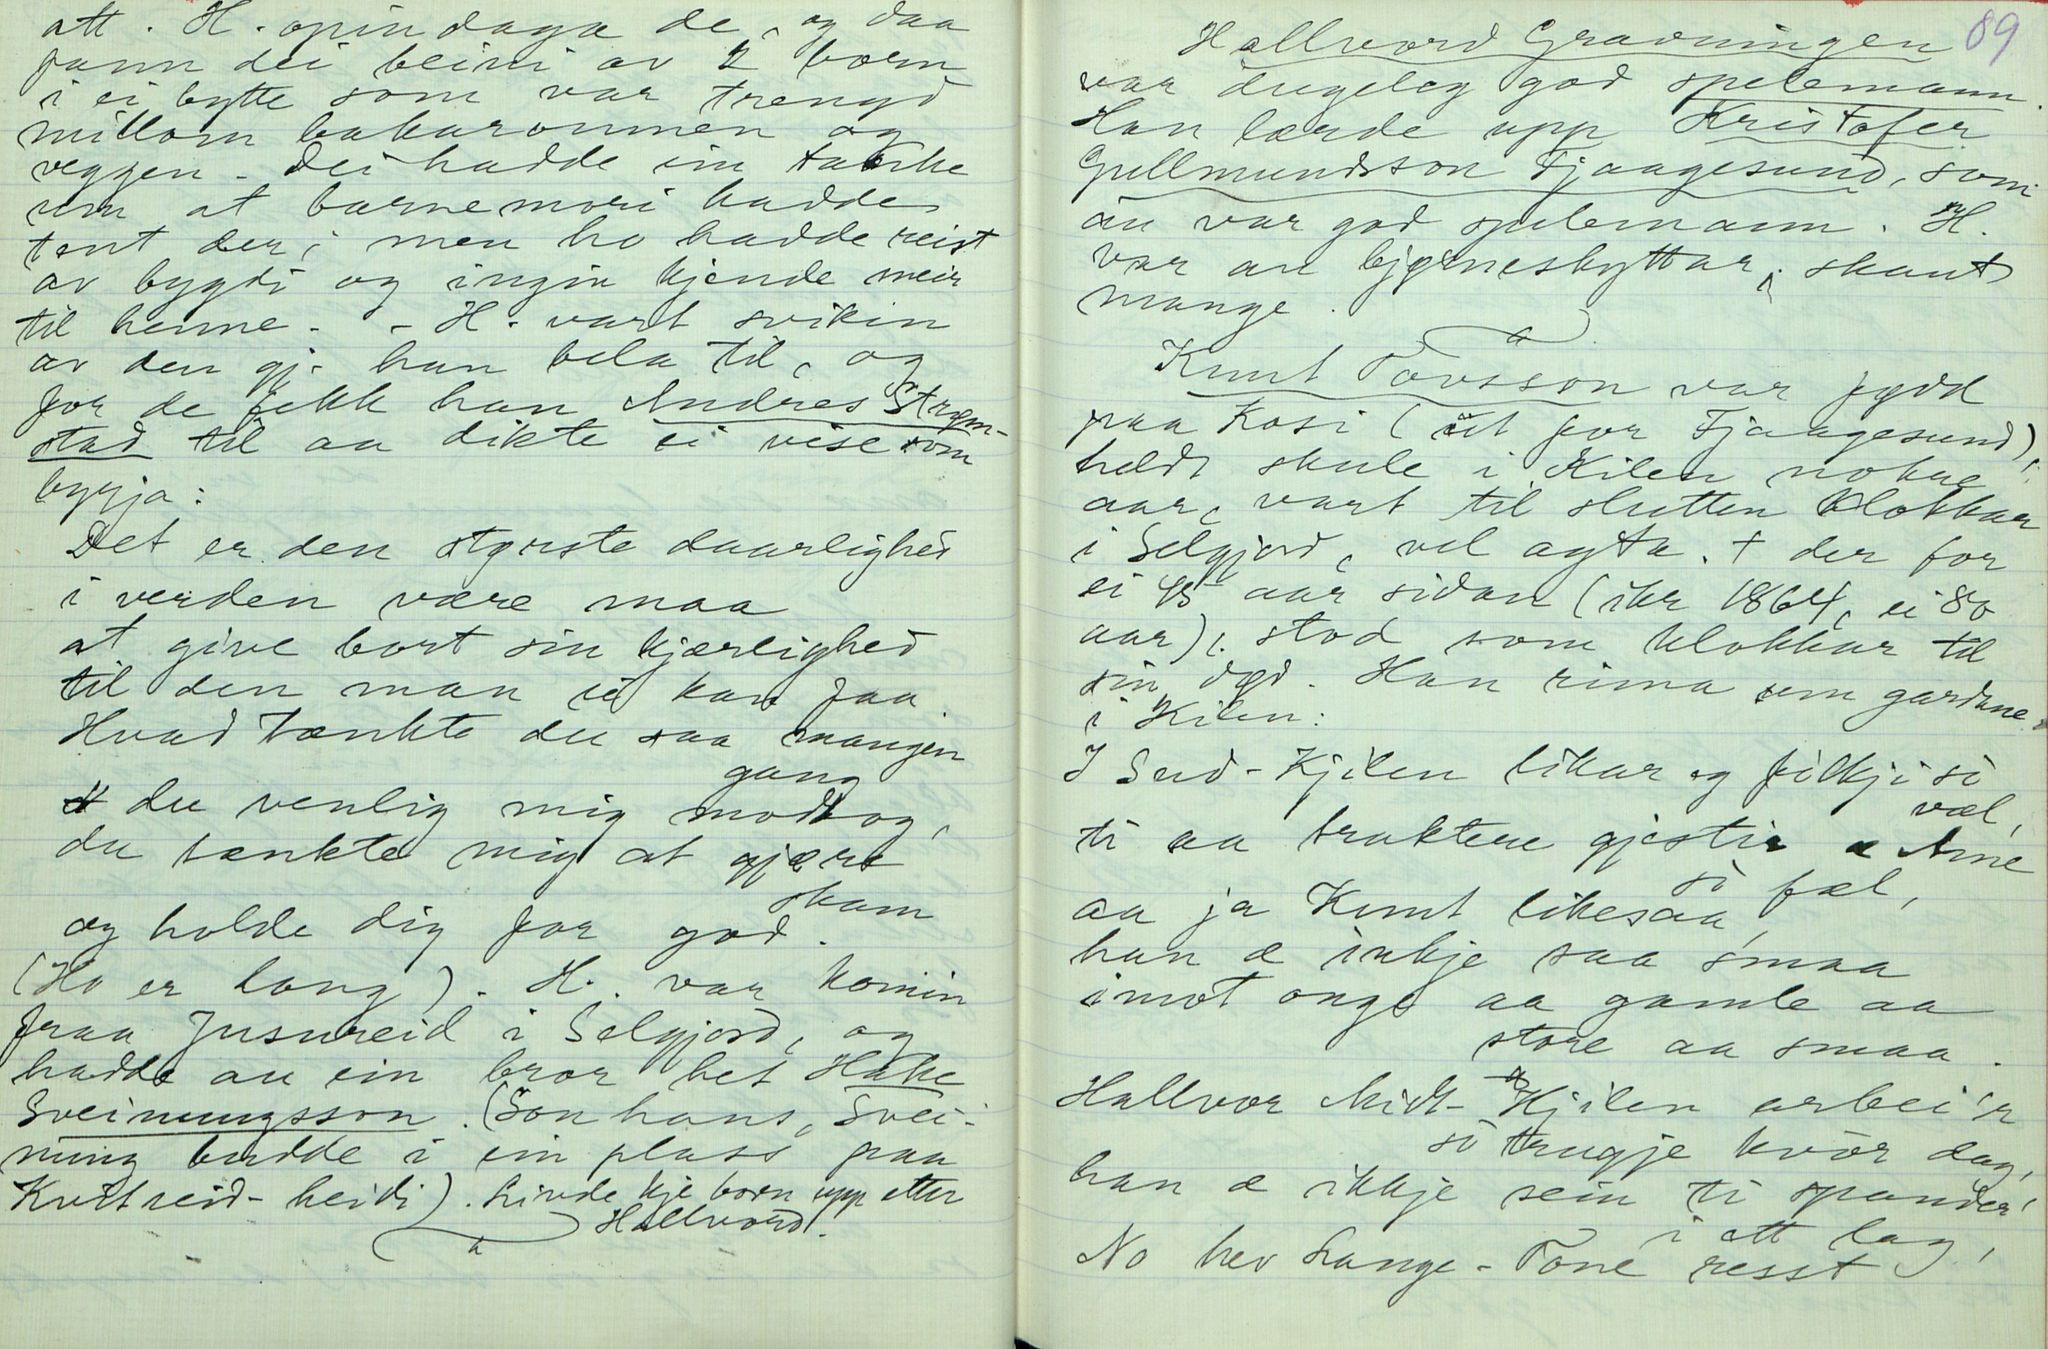 att. H. opindaga de, og daa
fann dei beini av 2 born
i ei bytte som var trengd
millom bakaromnen og
veggen. Dei hadde ein tanke
um at barnemori hadde
tent der; men ho hadde reist
av bygdi og ingin kjende meir
til henne. - H. vart svikin
av den gj. han bela til, og
for de fekk han Andres Strøm-
stad til aa dikte ei vise som
byrja:
Det er den største daarlighed
i verden være maa
at give bort sin kjærlighed
til den man ei kan faa
Hvad tænkte du saa mangen
gang
du venlig mig modtog,
du tænkte mig at gjøre
skam
og holde dig for god.
(Ho er long). H. var komin
fraa Jusureid i Selgjord, og
hadde au ein bror het Hake
Sveinungsson. (Son hans, Svei-
nung budde i ein plass paa
Kvitreid-heidi). Livde kje born upp etter
Hallvord.
89
Hallvord Gravningen
var dugeleg god spelemann.
Han lærde upp Kristofer
Gullmundsson Fjaagesund, som
au var god spelemann. H.
var au bjørneskyttar; skaut
mange.
Knut Tovsson var fødd
paa Kosi (ut for Fjaagesund),
heldt skule i Kilen nokre
aar, vart til slutten klokkar
i Selgjord, vel agta. + der for
ei 45 aar sidan (ikr 1864, ei 80
aar); stod som klokkar til
sin død. Han rima um gardane
i Kilen:
I Sud-Kjilen likar eg folkji so
væl,
ti aa traktere gjestir æ Anne
so fæl,
aa ja Knut likesaa,
han æ inkje saa smaa
imot onge aa gamle aa
store aa smaa.
Hallvor Midt-Kjilen arbei'er
so trugje kvor dag,
han æ ikkje sein ti spander'
i ett lag,
No hev Lange-Tone resst